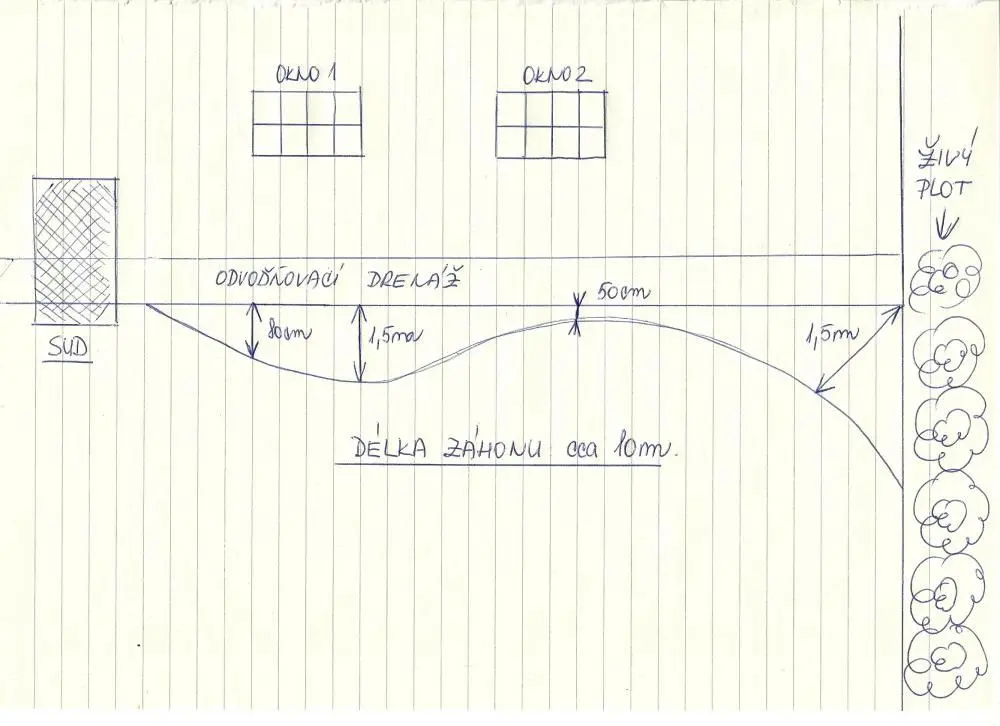 OKNO 1
OKNO 2
ŽIVÝ
PLOT
ODVODŇOVACÍ DRENÁŽ
50cm
80cm
1,5m
1,5m
SUD
DÉLKA ZÁHONU cca 10m.